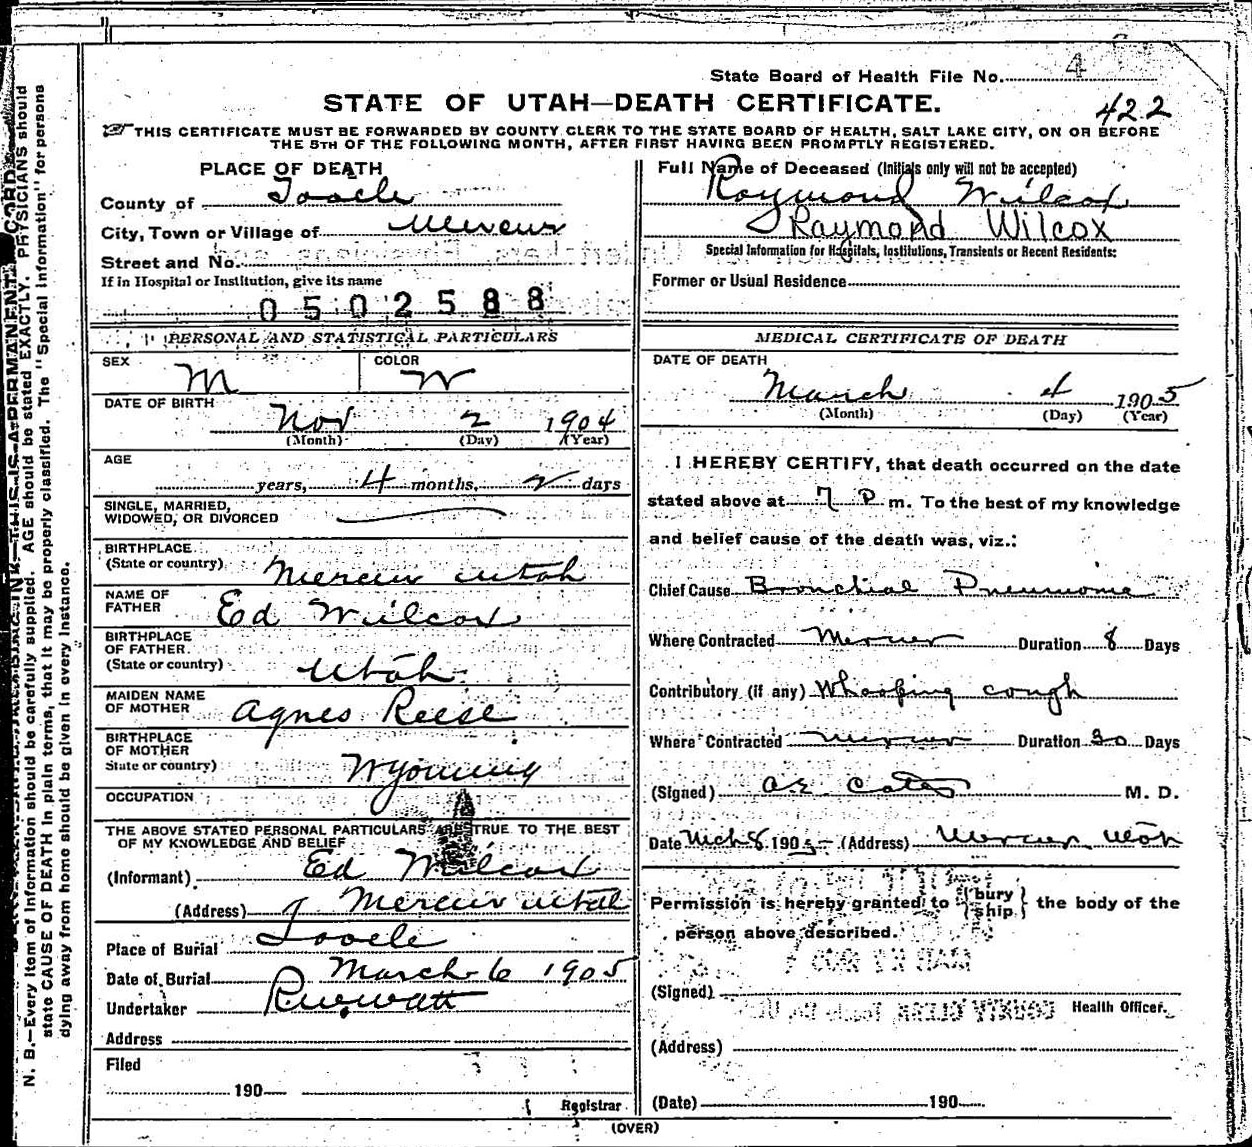 State Board of Health File No. 4
STATE OF UTAH—DEATH CERTIFICATE.
422
THIS CERTIFICATE MUST BE FORWARDED BY COUNTY CLERK TO THE STATE BOARD OF HEALTH, SALT LAKE CITY, ON OR BEFORE
THE 5TH OF THE FOLLOWING MONTH, AFTER FIRST HAVING BEEN PROMPTLY REGISTERED.
PLACE OF DEATH
County of Tooele
City, Town or Village of Mercur
Street and No.
If in Hospital or Institution, give its name
0502588
PERSONAL AND STATISTICAL PARTICULARS
SEX M COLOR W
DATE OF BIRTH
Nov 2 1904
(Month) (Day) (Year)
AGE
years, 4 months, 2 days
SINGLE, MARRIED,
WIDOWED, OR DIVORCED
BIRTHPLACE
(State or country) Mercur Utah
NAME OF
FATHER Ed Wilcox
BIRTHPLACE
OF FATHER
(State or country) Utah
MAIDEN NAME
OF MOTHER Agnes Reese
BIRTHPLACE
OF MOTHER
State or country) Wyoming
OCCUPATION
THE ABOVE STATED PERSONAL PARTICULARS ARE TRUE TO THE BEST
OF MY KNOWLEDGE AND BELIEF
(Informant) Ed Wilcox
(Address) Mercur Utah
Place of Burial Tooele
Date of Burial March 6 1905
Undertaker
Address
Filed
190
Registrar
Full Name of Deceased (Initials only will not be accepted)
Raymond Wilcox
Raymond Wilcox
Special Information for Hospitals, Institutions, Transients or Recent Residents:
Former or Usual Residence
MEDICAL CERTIFICATE OF DEATH
DATE OF DEATH
March 4 1905
(Month) (Day) (Year)
I HEREBY CERTIFY, that death occurred on the date
stated above at 7 P m. To the best of my knowledge
and belief cause of the death was, viz.:
Chief Cause Bronchial Pneumonia
Where Contracted Mercur Duration 8 Days
Contributory (if any) Whooping cough
Where Contracted Mercur Duration 30 Days
(Signed) M. D.
Date Mch 8 1905 (Address) Mercur Utah
Permission is hereby granted to {bury
ship} the body of the
person above described.
(Signed) Health Officer.
(Address)
(Date) 190
(OVER)
N. B.—Every item of information should be carefully supplied. AGE should be stated EXACTLY. PHYSICIANS should
state CAUSE OF DEATH in plain terms, that it may be properly classified. The "Special Information" for persons
dying away from home should be given in every instance.